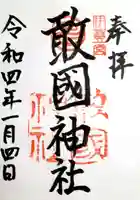 奉拝
敢國神社
令和四年一月四日